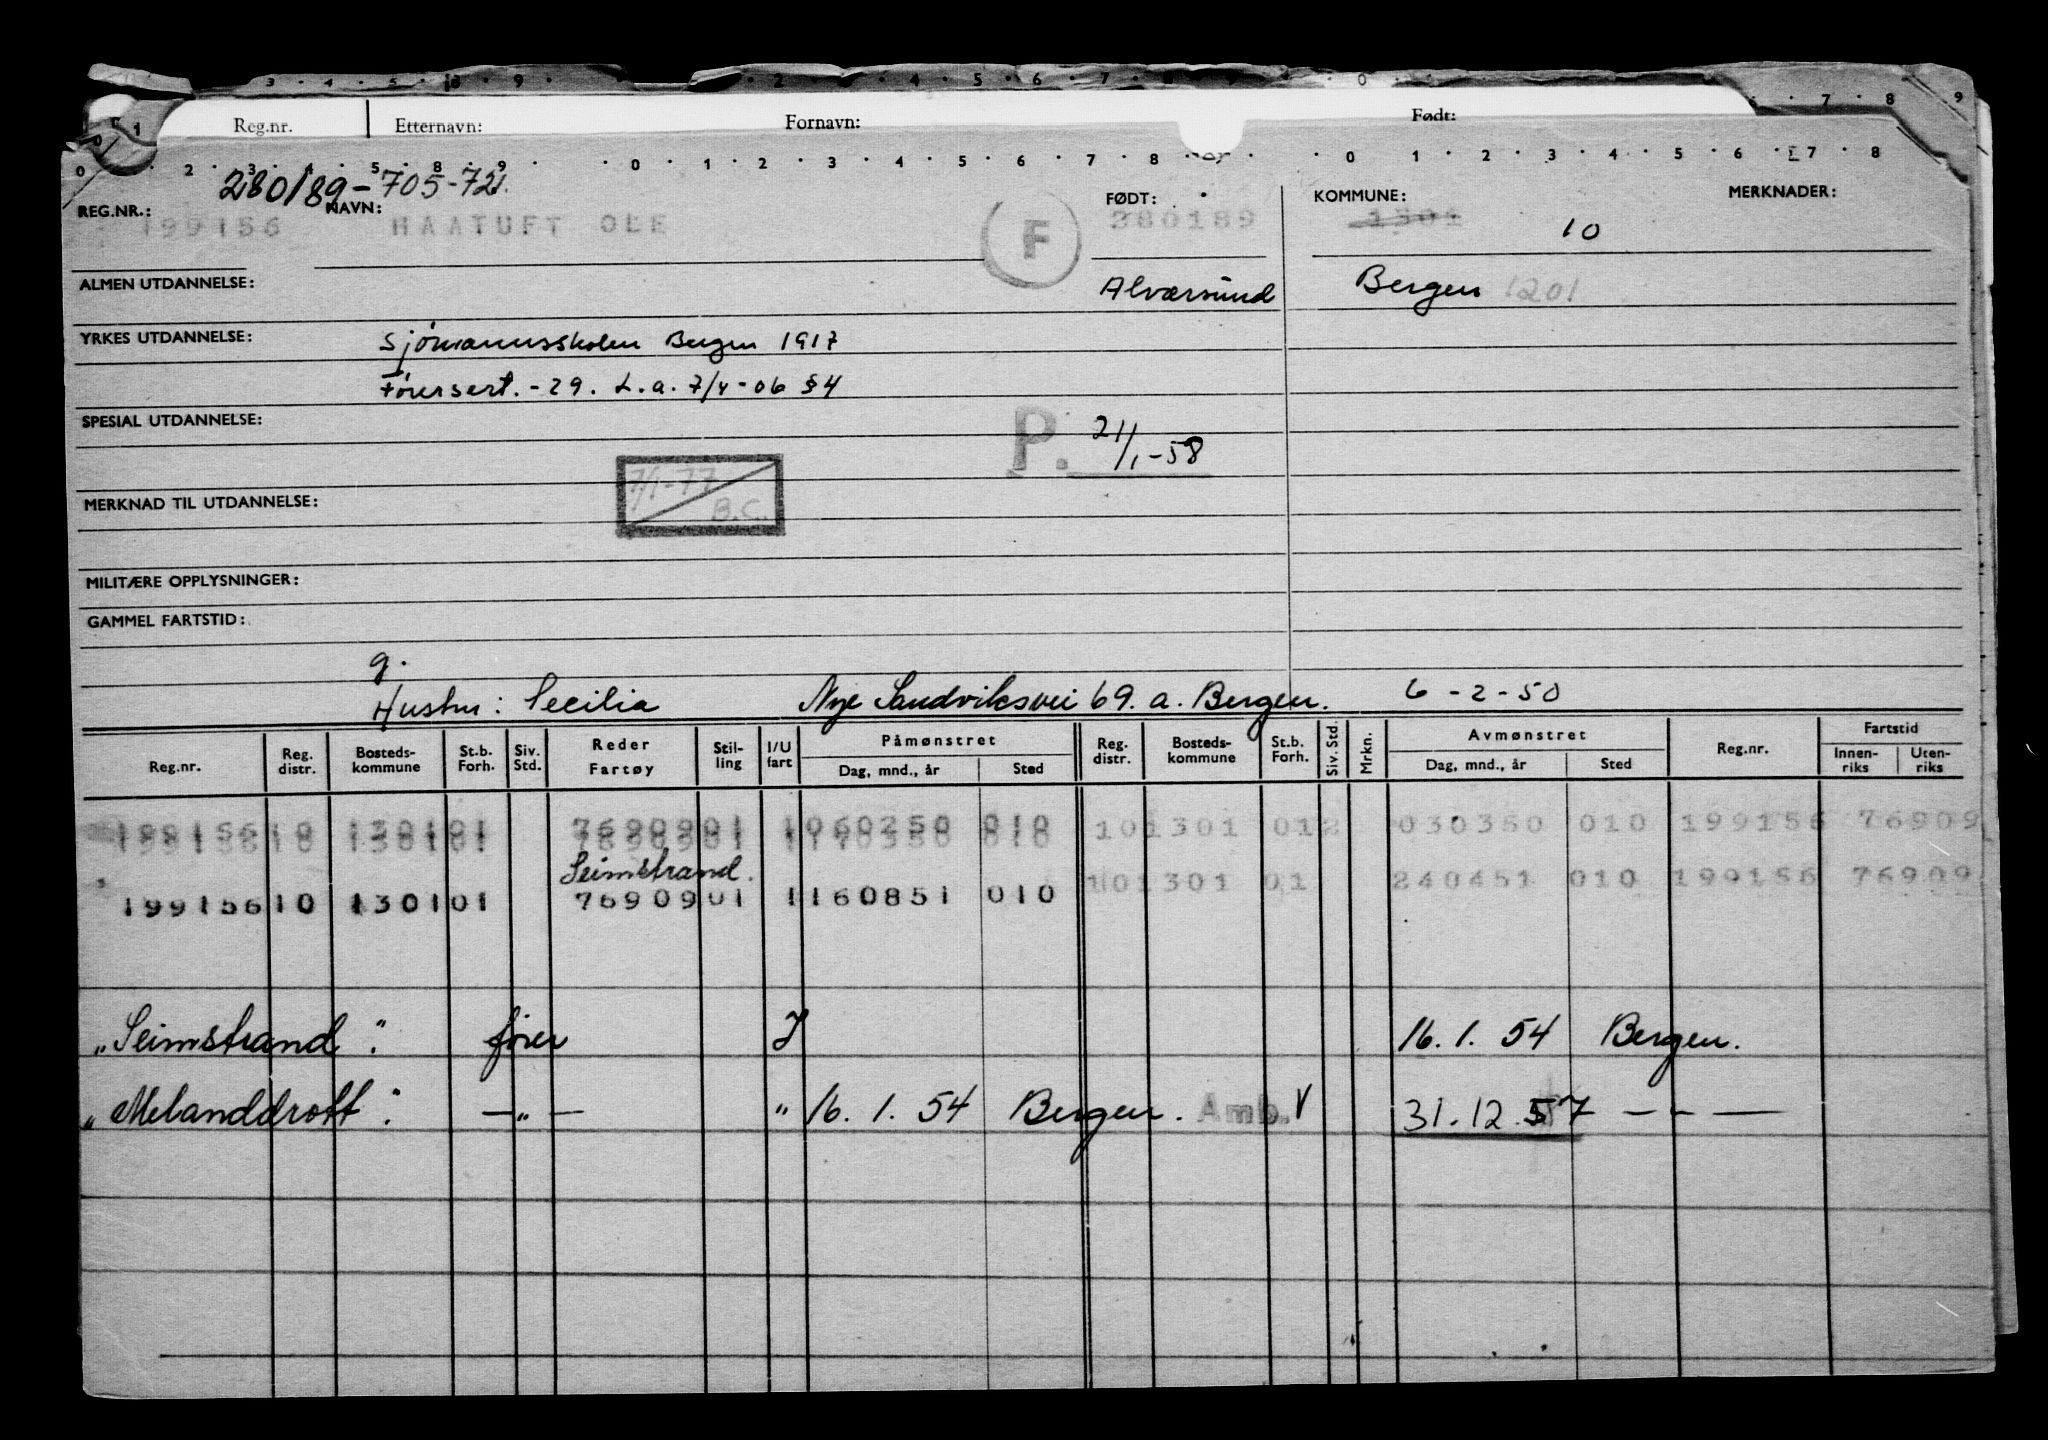 Reg.nr. Etternavn: Fornavn: Født:
280189-705-72
REG.NR.: NAVN: FØDT: KOMMUNE: MERKNADER:
199156 HAATUFT OLE F 280189 1301 10
ALMEN UTDANNELSE: Alversund Bergen 1201
YRKES UTDANNELSE: Sjømannsskolen Bergen 1917
Førersert. -29. L.a. 7/4-06 §4
SPESIAL UTDANNELSE: P. 21/1-58
7/1-77 B.C.
MERKNAD TIL UTDANNELSE:
MILITÆRE OPPLYSNINGER:
GAMMEL FARTSTID:
g.
Hustru: Cecilia Nye Sandviksvei 69.a. Bergen. 6-2-50
Reg.nr. Reg. distr. Bosteds-kommune St.b. Forh. Siv. Std. Reder Fartøy Stil-ling I/U fart Påmønstret Dag, mnd., år Sted Reg. distr. Bosteds-kommune St.b. Forh. Siv. Std. Mrkn. Avmønstret Dag, mnd., år Sted Reg.nr. Fartstid Innen-riks Uten-riks
199156 10 1301 01 76909 01 1 060250 010 10 1301 01 2 030350 010 199156 76909
199156 10 1301 01 76909 01 1 170350 010
Seimstrand. 10 1301 01 240451 010 199156 76909
199156 10 1301 01 76909 01 1 160851 010
"Seimstrand": fører I 16.1.54 Bergen.
"Melanddrott": —"— " 16.1.54 Bergen. Amb. V 31.12.57 — " —